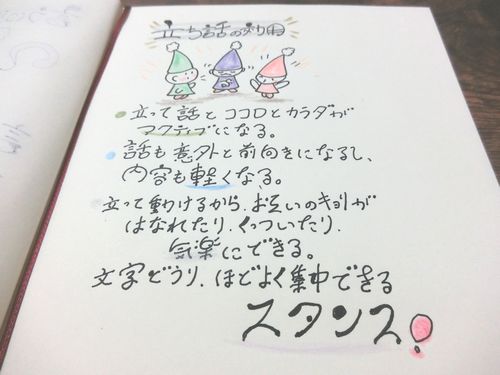 立ち話の効用
立って話とココロとカラダが
アクティブになる。
話も意外と前向きになるし、
内容も軽くなる。
立って動けるから、お互いのキョリが
はなれたり、くっついたり、
気楽にできる。
文字どうり、ほどよく集中できる
スタンス!